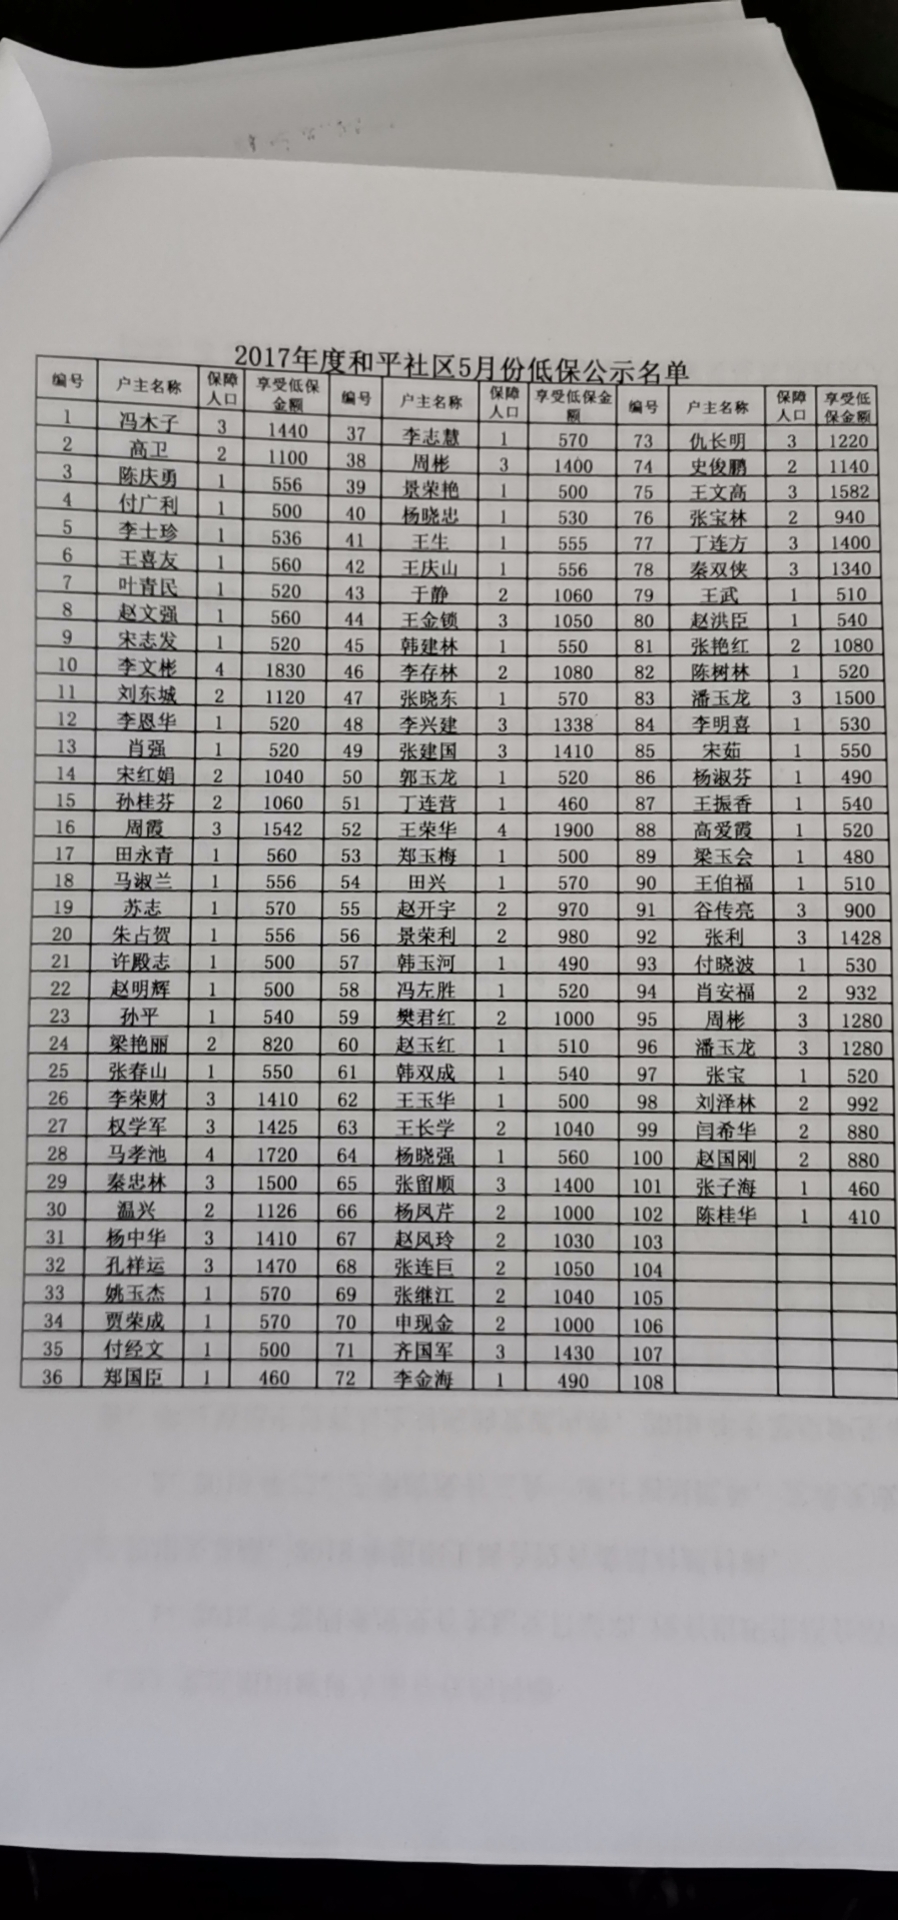 2017年度和平社区5月份低保公示名单
编号 户主名称 保障人口 享受低保金额 编号 户主名称 保障人口 享受低保金额 编号 户主名称 保障人口 享受低保金额
1 冯木子 3 1440 37 李志慧 1 570 73 仇长明 3 1220
2 高卫 2 1100 38 周彬 3 1400 74 史俊鹏 2 1140
3 陈庆勇 1 556 39 景荣艳 1 500 75 王文高 3 1582
4 付广利 1 500 40 杨晓忠 1 530 76 张宝林 2 940
5 李士珍 1 536 41 王生 1 555 77 丁连方 3 1400
6 王喜友 1 560 42 王庆山 1 556 78 秦双侠 3 1340
7 叶青民 1 520 43 于静 2 1060 79 王武 1 510
8 赵文强 1 560 44 王金锁 3 1050 80 赵洪臣 1 540
9 宋志发 1 520 45 韩建林 1 550 81 张艳红 2 1080
10 李文彬 4 1830 46 李存林 2 1080 82 陈树林 1 520
11 刘东城 2 1120 47 张晓东 1 570 83 潘玉龙 3 1500
12 李恩华 1 520 48 李兴建 3 1338 84 李明喜 1 530
13 肖强 1 520 49 张建国 3 1410 85 宋茹 1 550
14 宋红娟 2 1040 50 郭玉龙 1 520 86 杨淑芬 1 490
15 孙桂芬 2 1060 51 丁连营 1 460 87 王振香 1 540
16 周霞 3 1542 52 王荣华 4 1900 88 高爱霞 1 520
17 田永青 1 560 53 郑玉梅 1 500 89 梁玉会 1 480
18 马淑兰 1 556 54 田兴 1 570 90 王伯福 1 510
19 苏志 1 570 55 赵开宇 2 970 91 谷传亮 3 900
20 朱占贺 1 556 56 景荣利 2 980 92 张利 3 1428
21 许殿志 1 500 57 韩玉河 1 490 93 付晓波 1 530
22 赵明辉 1 500 58 冯左胜 1 520 94 肖安福 2 932
23 孙平 1 540 59 樊君红 2 1000 95 周彬 3 1280
24 梁艳丽 2 820 60 赵玉红 1 510 96 潘玉龙 3 1280
25 张春山 1 550 61 韩双成 1 540 97 张宝 1 520
26 李荣财 3 1410 62 王玉华 1 500 98 刘泽林 2 992
27 权学军 3 1425 63 王长学 2 1040 99 闫希华 2 880
28 马孝池 4 1720 64 杨晓强 1 560 100 赵国刚 2 880
29 秦忠林 3 1500 65 张留顺 3 1400 101 张子海 1 460
30 温兴 2 1126 66 杨凤芹 2 1000 102 陈桂华 1 410
31 杨中华 3 1410 67 赵凤玲 2 1030 103
32 孔祥运 3 1470 68 张连巨 2 1050 104
33 姚玉杰 1 570 69 张继江 2 1040 105
34 贾荣成 1 570 70 申现金 2 1000 106
35 付经文 1 500 71 齐国军 3 1430 107
36 郑国臣 1 460 72 李金海 1 490 108